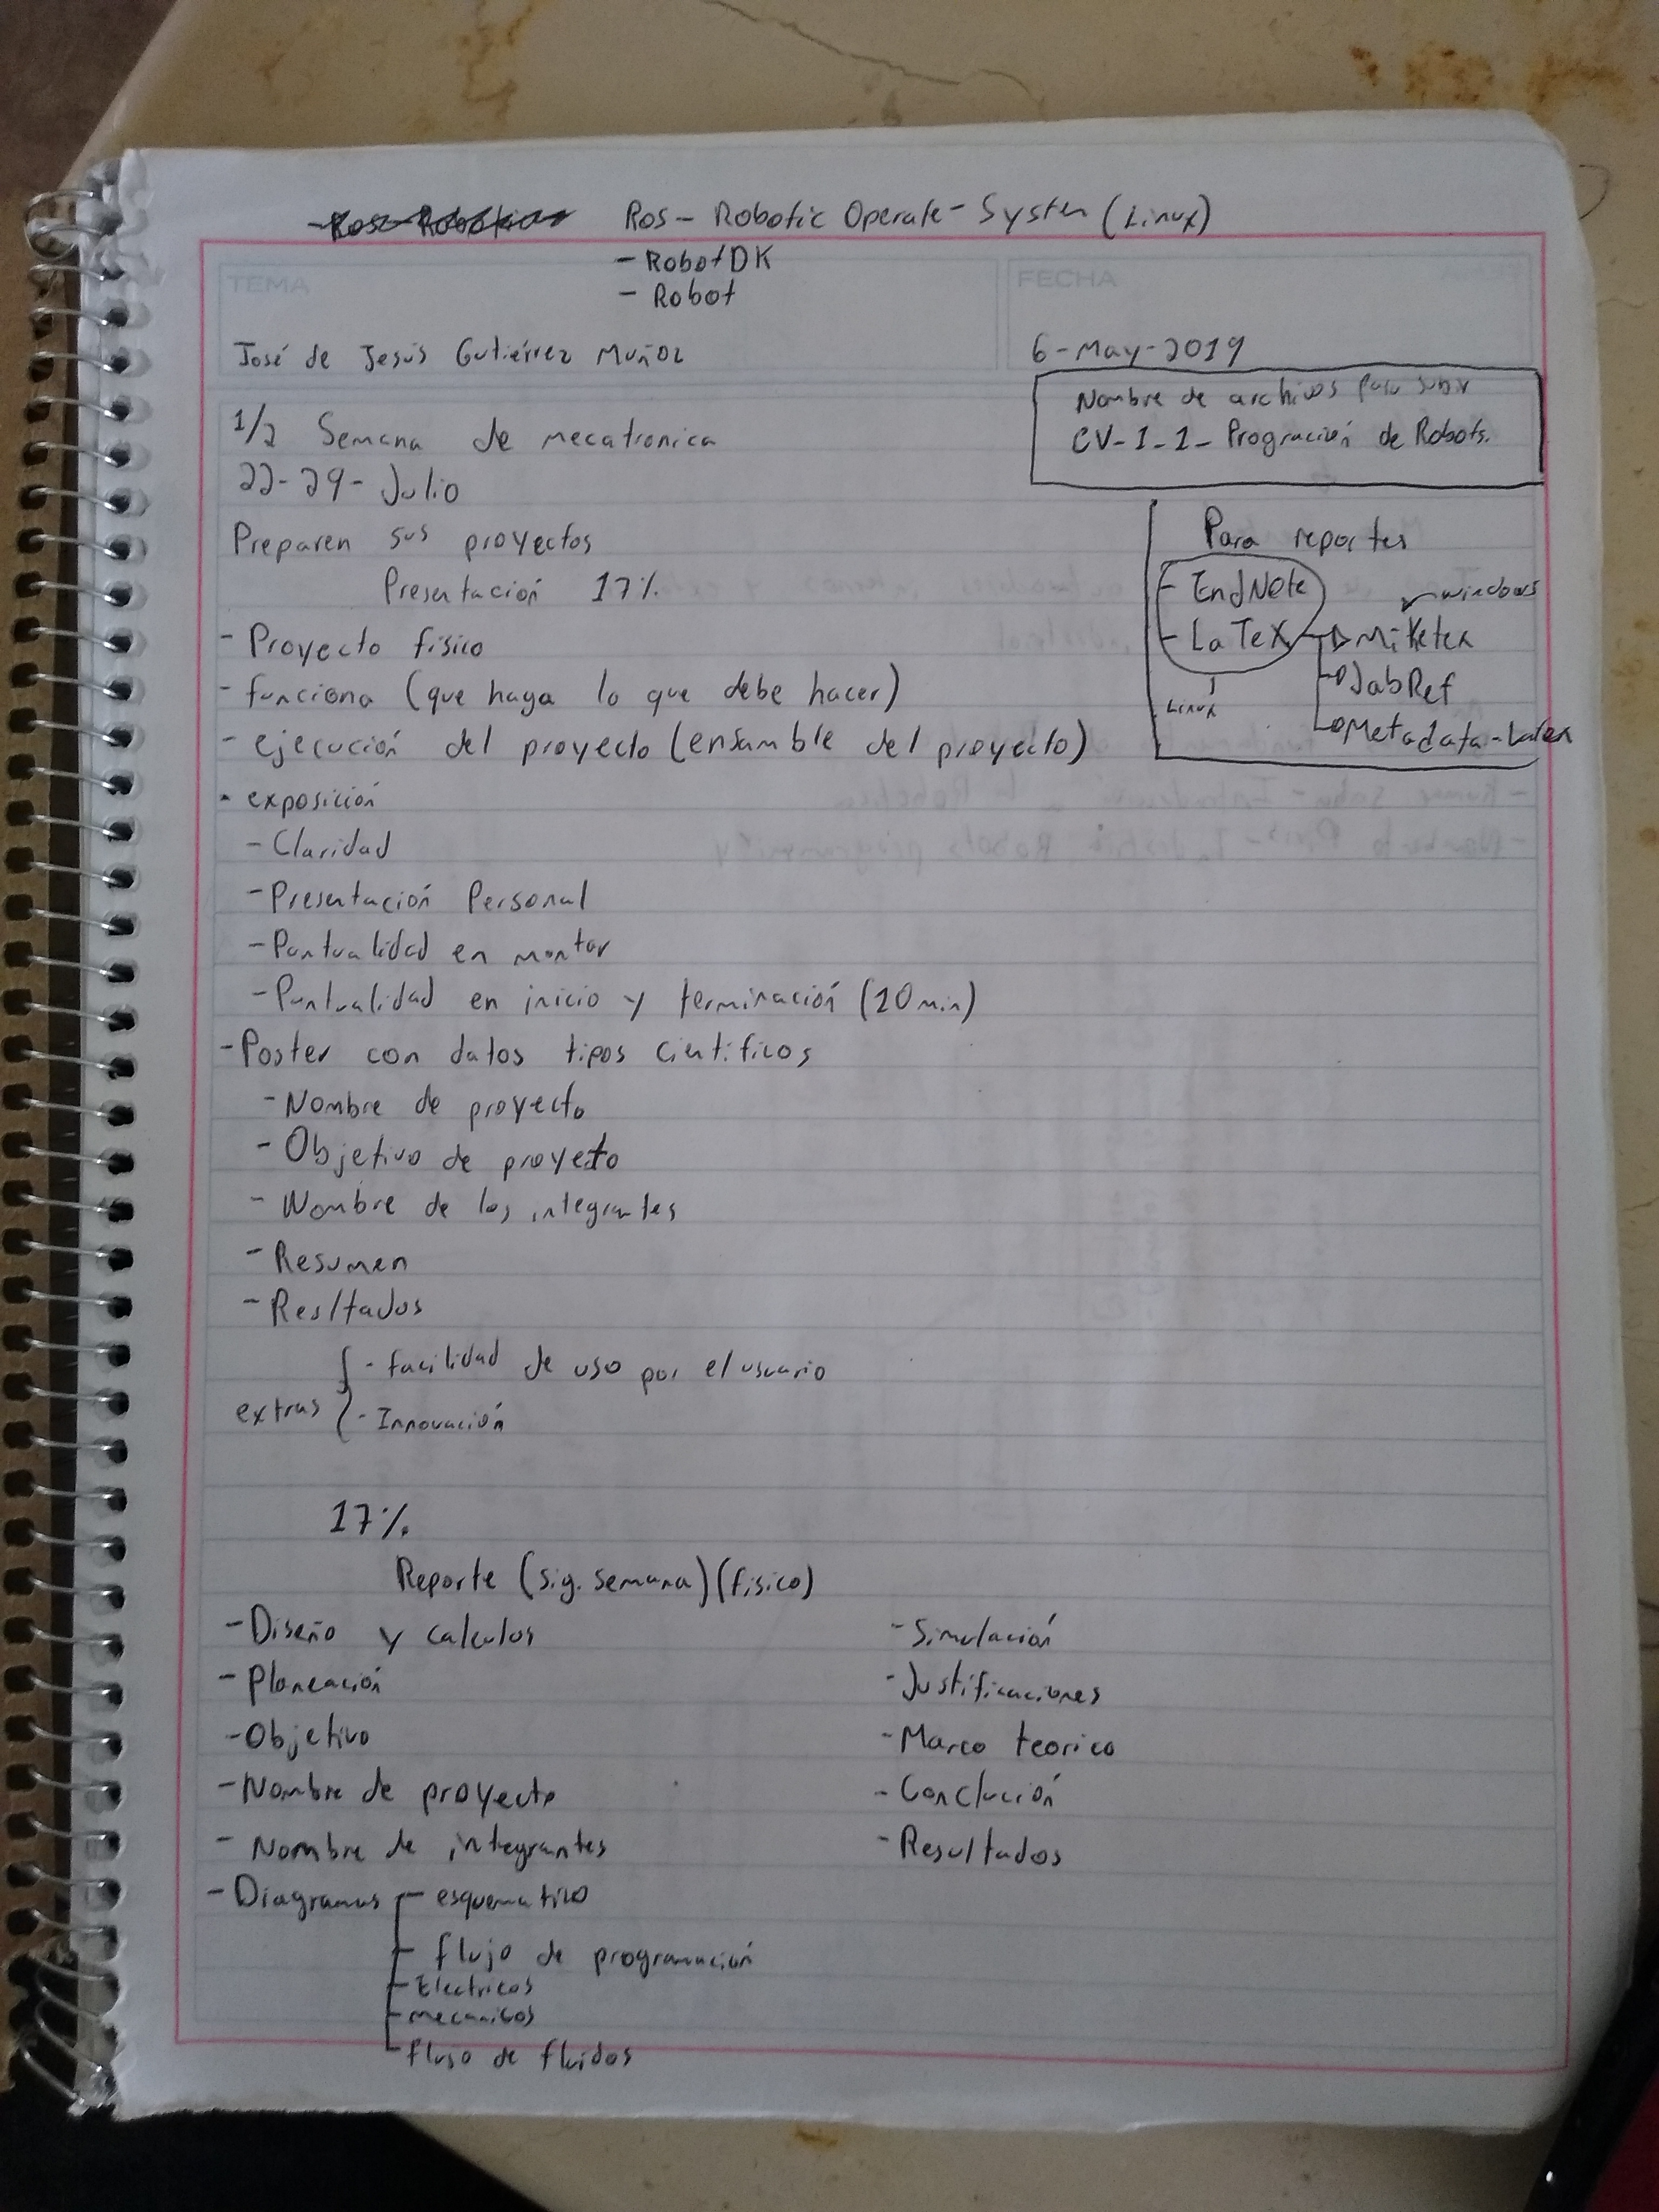 Ros - Robotic Operate - System (Linux)
- RobotDK
- Robot
TEMA
FECHA
José de Jesús Gutiérrez Muñoz
6-May-2019
Nombre de archivos para subir
CV-1-1- Progración de Robots.
1/2 Semana de mecatronica
22-29- Julio
Preparen sus proyectos
Presentación 17%
Para reportes
- EndNote
- LaTeX
windows
Miketex
JabRef
Metadata-Latex
Linux
- Proyecto fisico
- funciona (que haga lo que debe hacer)
- ejecución del proyecto (ensamble del proyecto)
- exposición
- Claridad
- Presentación Personal
- Puntualidad en montar
- Puntualidad en inicio y terminación (10 min)
- Poster con datos tipos cientificos
- Nombre de proyecto
- Objetivo de proyecto
- Nombre de los integrantes
- Resumen
- Resltados
extras { - facilidad de uso por el usuario
- Innovación
17%
Reporte (sig. semana) (fisico)
- Diseño y calculos
- Planeación
- Objetivo
- Nombre de proyecto
- Nombre de integrantes
- Diagramas
- esquematico
- flujo de programación
- Electricos
- mecanicos
- fluso de fluidos
- Simulación
- Justificaciones
- Marco teorico
- Conclución
- Resultados